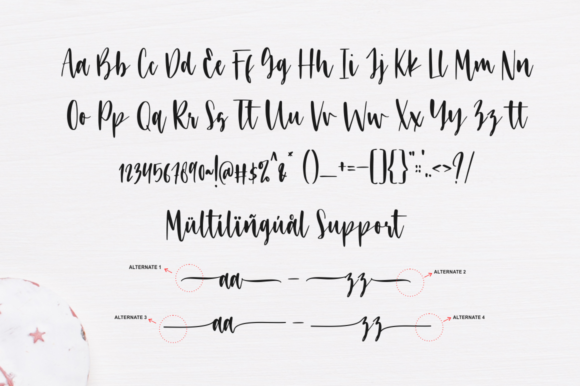 Aa Bb Cc Dd Ee Ff Gg Hh Ii Jj Kk Ll Mm Nn
Oo Pp Qq Rr Ss Tt Uu Vv Ww Xx Yy Zz tt
1234567890~!@#$%^&* ()_+=-[]{}":;'.,<>?/
Mültilïñgúål Support
ALTERNATE 1 aa – zz ALTERNATE 2
ALTERNATE 3 aa – zz ALTERNATE 4